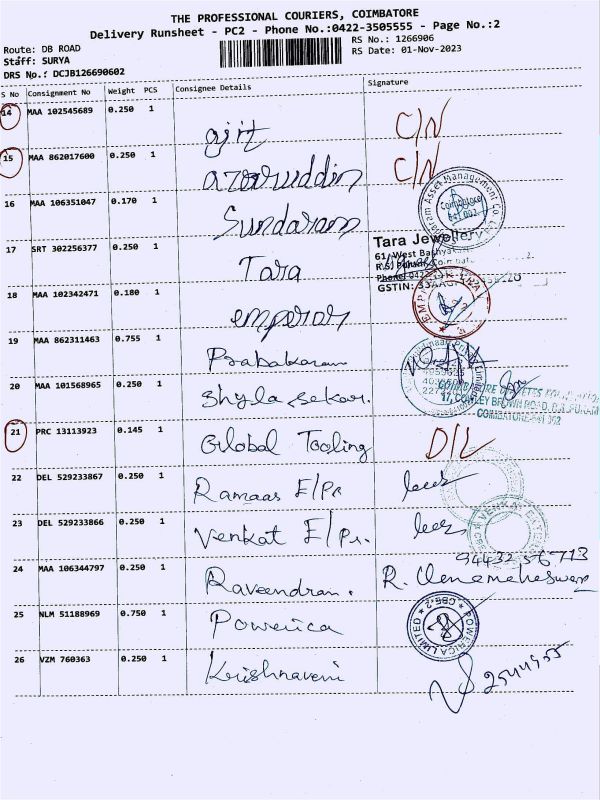 THE PROFESSIONAL COURIERS, COIMBATORE
Delivery Runsheet - PC2 - Phone No.:0422-3505555 - Page No.:2
Route: DB ROAD
RS No.: 1266906
Staff: SURYA
RS Date: 01-Nov-2023
DRS No.: DCJB126690602
S No Consignment No Weight PCS Consignee Details Signature
14 MAA 102545689 0.250 1 ajit C/N
15 MAA 862017600 0.250 1 azaruddin C/N
16 MAA 106351047 0.170 1 Sundaram
Asset Management Co.
Coimbatore
641 002
17 SRT 302256377 0.250 1 Tara
Tara Jewellery
61, West
R.S. Puram,
Phone
GSTIN: 33AAG
18 MAA 102342471 0.180 1 emperor
19 MAA 862311463 0.755 1 Prabakaran
20 MAA 101568965 0.250 1 Shyla Sekar.
17, COWLEY BROWN ROAD, R.S. PURAM
COIMBATORE-641 002
21 PRC 13113923 0.145 1 Global Tooling D/L
22 DEL 529233867 0.250 1 Ramaas E/Pr
23 DEL 529233866 0.250 1 Venkat E/Pr.
VENKAT
24 MAA 106344797 0.250 1 Raveendran. R. Umamaheswari
94432 56713
25 NLM 51188969 0.750 1 Powerica
POWERICA LIMITED
CBE-2
26 VZM 760363 0.250 1 Krishnaveni
2544955